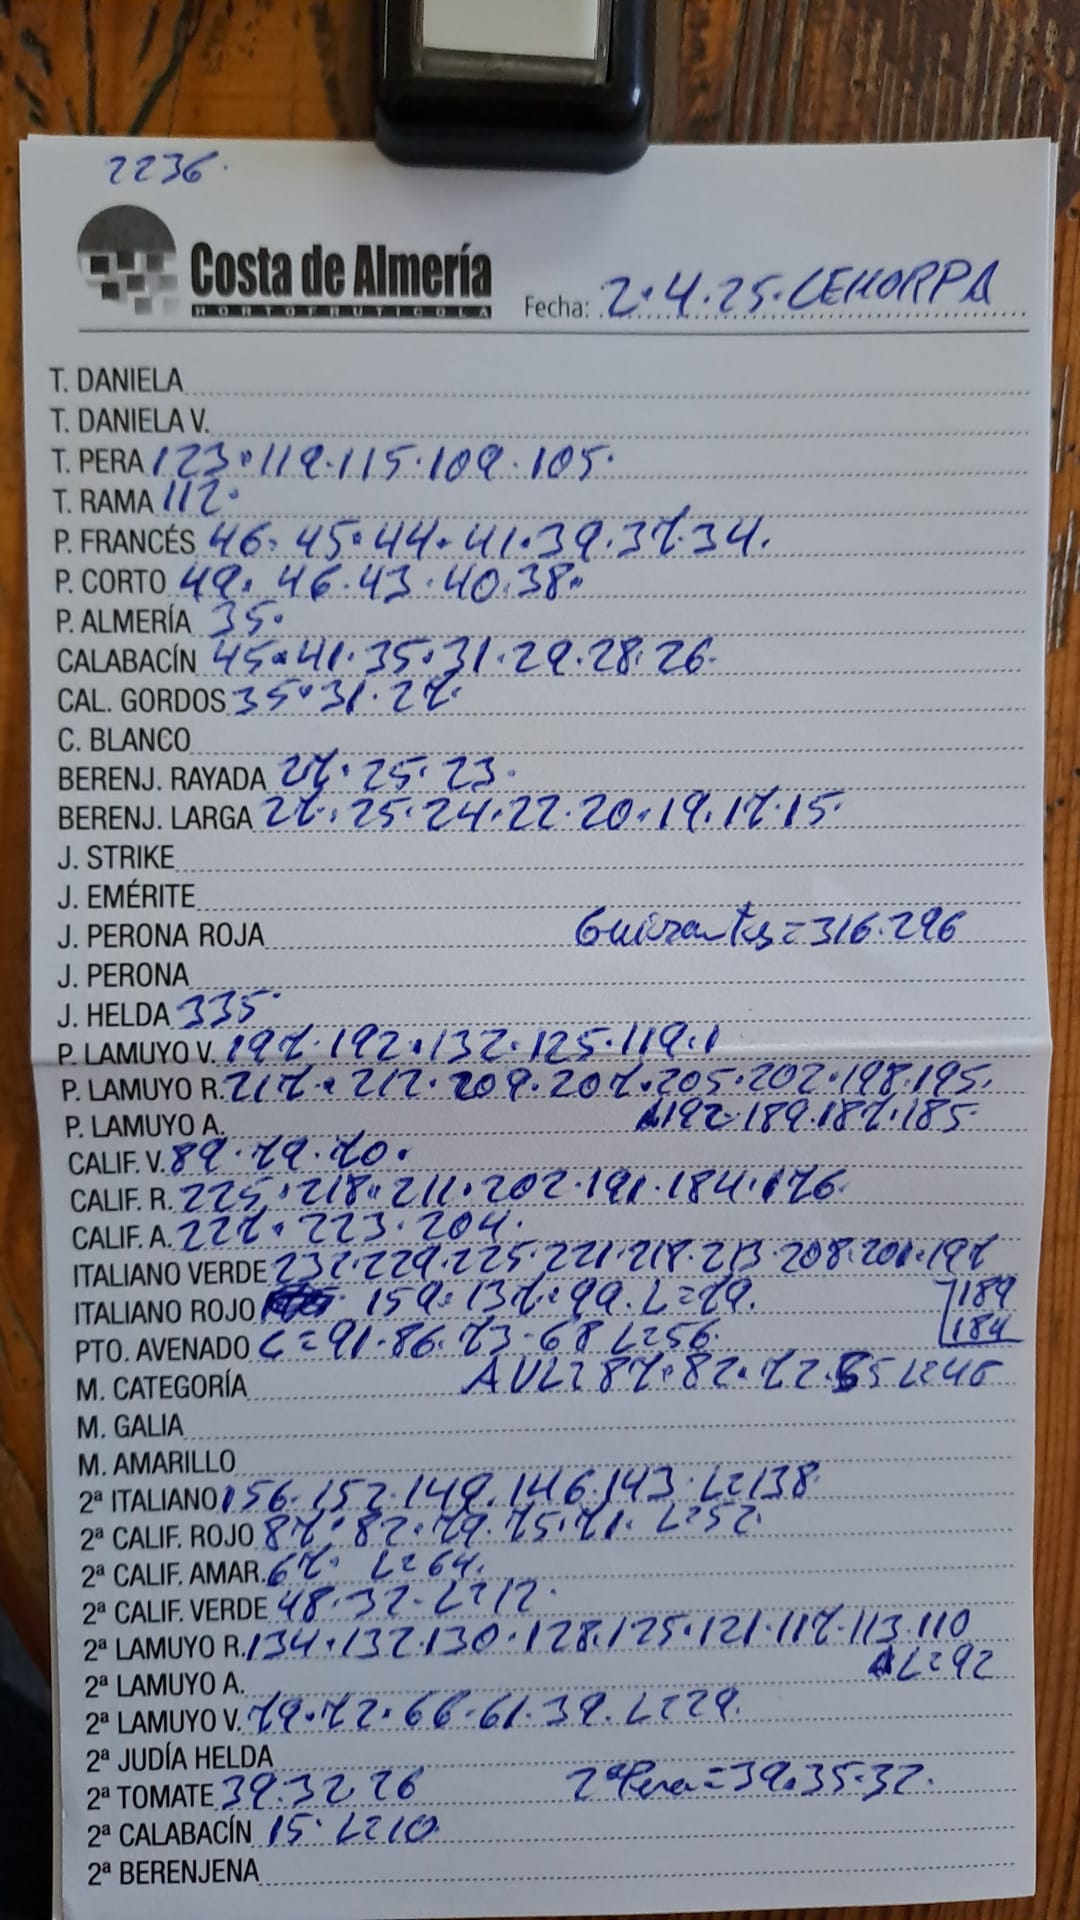 2236.
Costa de Almería
HORTOFRUTICOLA
Fecha: 2.4.25. CEHORPA
T. DANIELA
T. DANIELA V.
T. PERA 123.119.115.109.105.
T. RAMA 112.
P. FRANCÉS 46.45.44.41.39.37.34.
P. CORTO 49.46.43.40.38.
P. ALMERÍA 35.
CALABACÍN 45.41.35.31.29.28.26.
CAL. GORDOS 35.31.27.
C. BLANCO
BERENJ. RAYADA 27.25.23.
BERENJ. LARGA 27.25.24.22.20.19.17.15.
J. STRIKE
J. EMÉRITE
J. PERONA ROJA Guisantes=316.296
J. PERONA
J. HELDA 335.
P. LAMUYO V. 197.192.132.125.119.1
P. LAMUYO R. 217.212.209.207.205.202.198.195.
P. LAMUYO A. 192.189.187.185
CALIF. V. 89.79.70.
CALIF. R. 225.218.211.202.191.184.176.
CALIF. A. 227.223.204.
ITALIANO VERDE 232.229.225.221.218.213.208.201.197
ITALIANO ROJO 159.137.99.L=79. 189
184
PTO. AVENADO C=91.86.73.68 L=56.
M. CATEGORÍA AVL=87.82.72.65 L=46
M. GALIA
M. AMARILLO
2ª ITALIANO 156.152.149.146.143.L=138.
2ª CALIF. ROJO 87.82.79.75.71. L=52.
2ª CALIF. AMAR. 67. L=64.
2ª CALIF. VERDE 48.32.L=12.
2ª LAMUYO R. 134.132.130.128.125.121.117.113.110
2ª LAMUYO A. L=92
2ª LAMUYO V. 79.72.66.61.39.L=29.
2ª JUDÍA HELDA
2ª TOMATE 39.32.26 2ªPera=39.35.32.
2ª CALABACÍN 15. L=10.
2ª BERENJENA